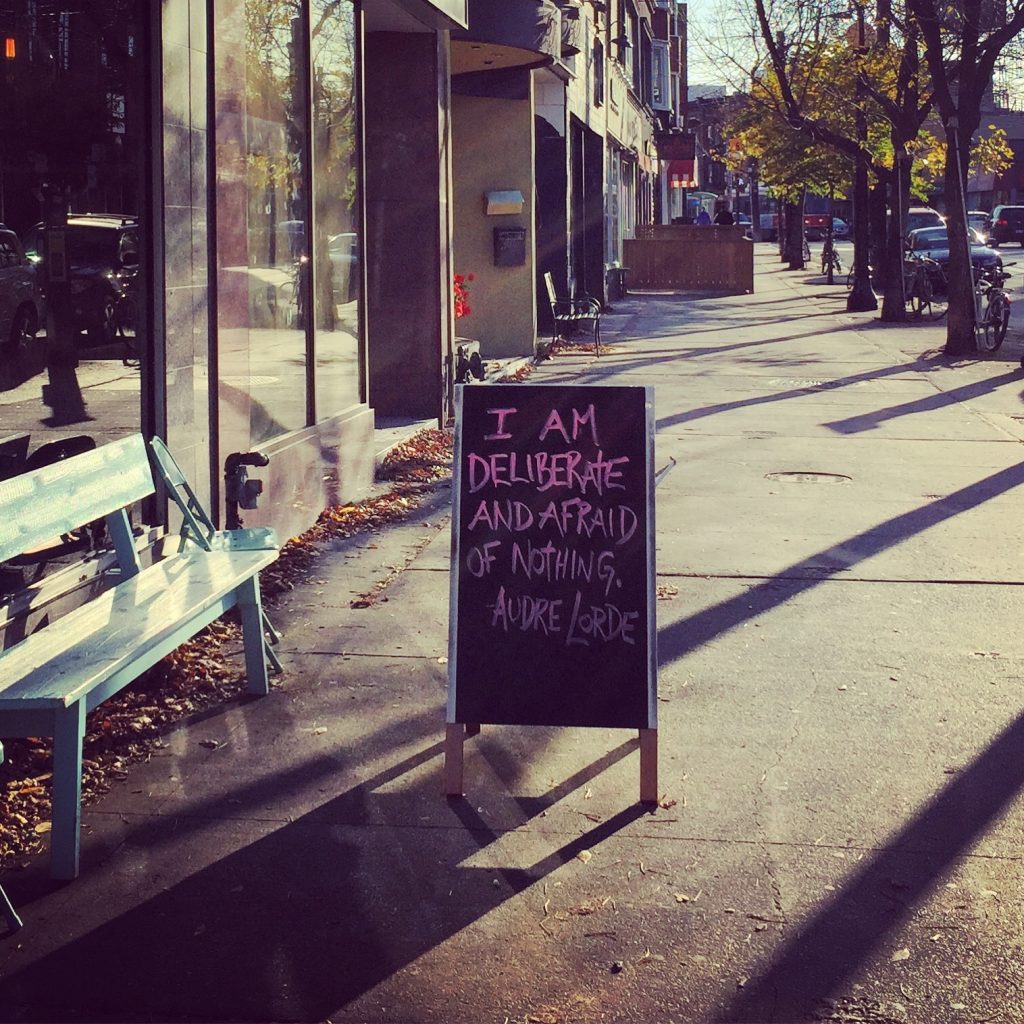 I AM
DELIBERATE
AND AFRAID
OF NOTHING.
AUDRE LORDE